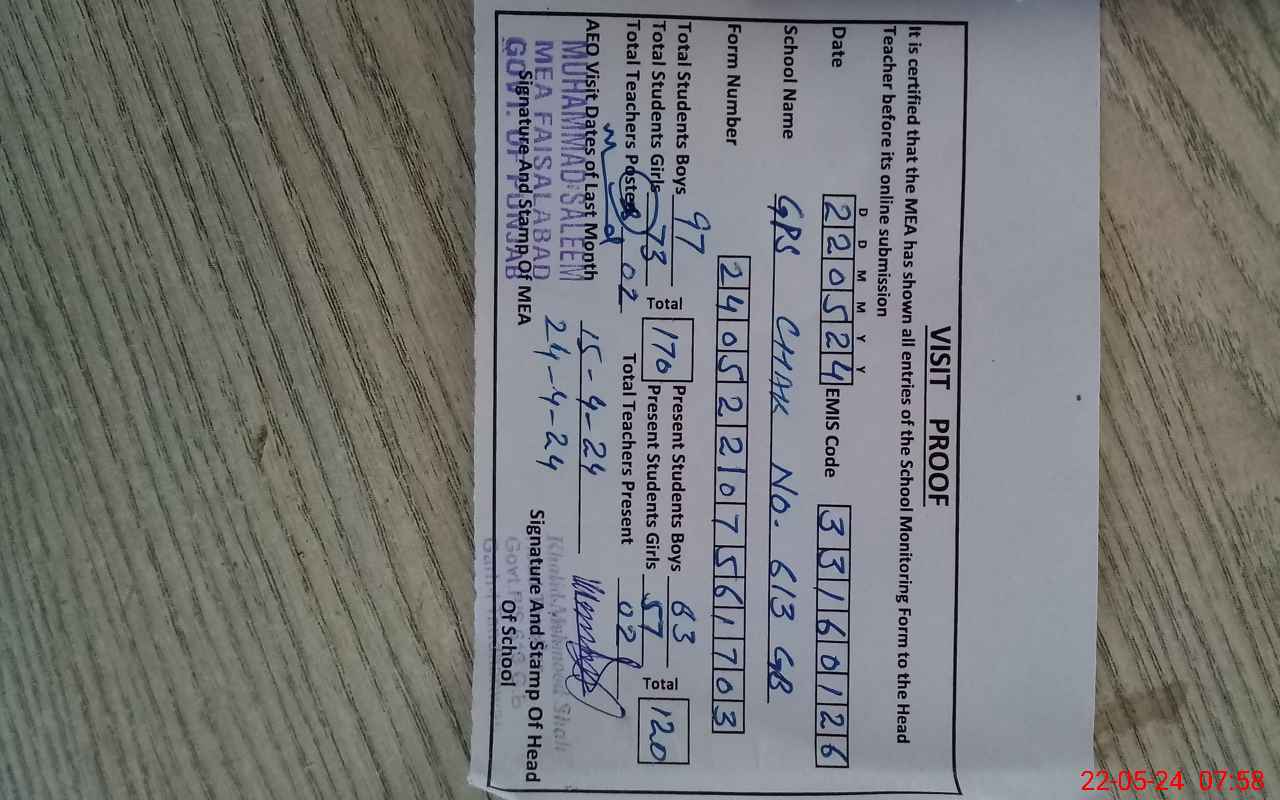 VISIT PROOF
It is certified that the MEA has shown all entries of the School Monitoring Form to the Head
Teacher before its online submission
D D M M Y Y
Date 220524 EMIS Code 33160126
School Name GPS CHAK NO. 613 GB
Form Number 240522107561703
Total Students Boys 97 Present Students Boys 63
Total Students Girls 73 Total 170 Present Students Girls 57 Total 120
Total Teachers Posted 02 Total Teachers Present 02
AEO Visit Dates of Last Month 15-4-24
24-4-24
MUHAMMAD SALEEM
MEA FAISALABAD
GOVT. OF PUNJAB
Signature And Stamp Of MEA
Signature And Stamp Of Head
Of School
22-05-24 07:58